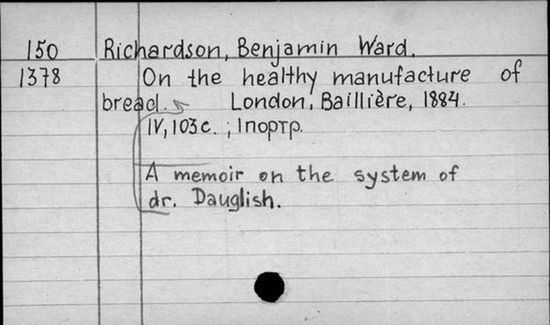 150 Richardson, Benjamin Ward.
1378 On the healthy manufacture of
bread. London, Baillière, 1884.
IV, 103 c. ; 1 портр.
A memoir on the system of
dr. Dauglish.